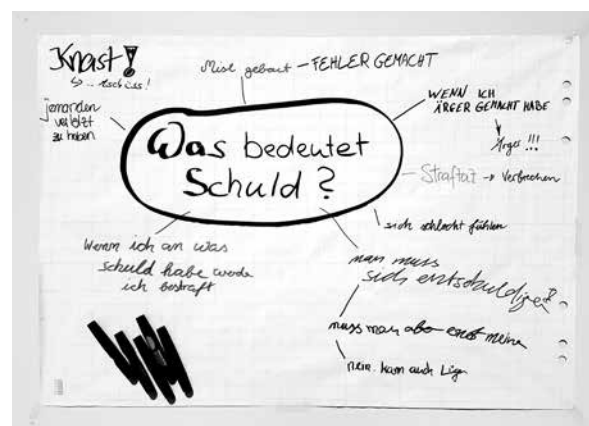 Knast!
↳ .. tschüss!
Mist gebaut – FEHLER GEMACHT
jemanden
verletzt
zu haben
WENN ICH
ÄRGER GEMACHT HABE
Ärger !!!
Was bedeutet
Schuld ?
Straftat → Verbrechen
sich schlecht fühlen
Wenn ich an was
schuld habe werde
ich bestraft
man muss
sich entschuldigen
muss man aber ernst meinen
nein. kann auch Lügen